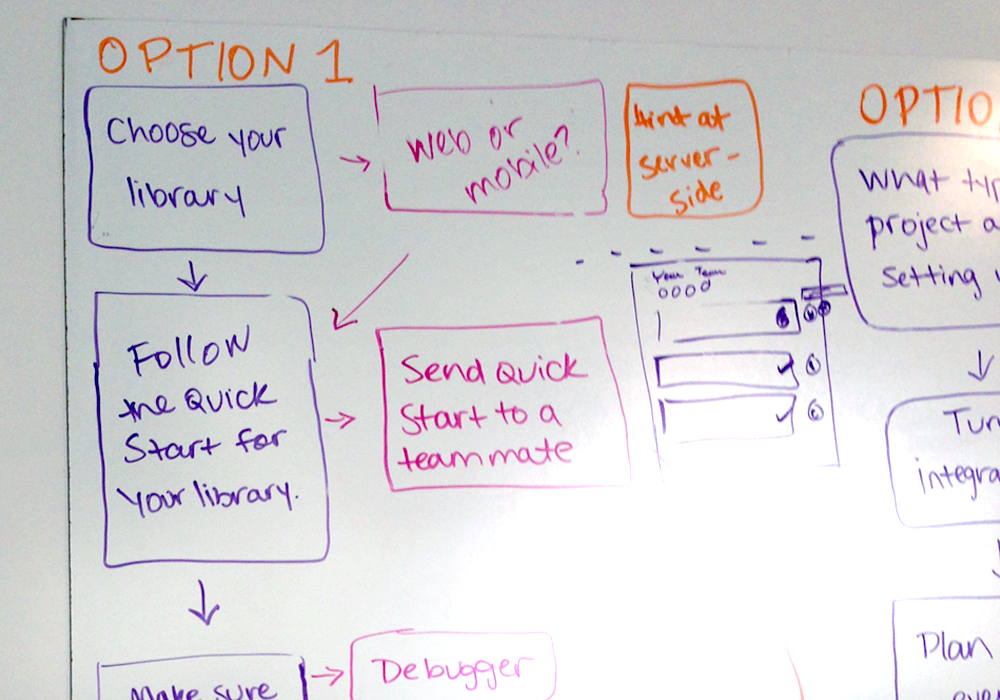 OPTION 1
Choose your
library
web or
mobile?
Hint at
server-
side
Follow
the Quick
Start for
your library.
Send Quick
Start to a
teammate
Your Team
Make sure
Debugger
OPTIO
What typ
project a
setting
Tun
integra
Plan